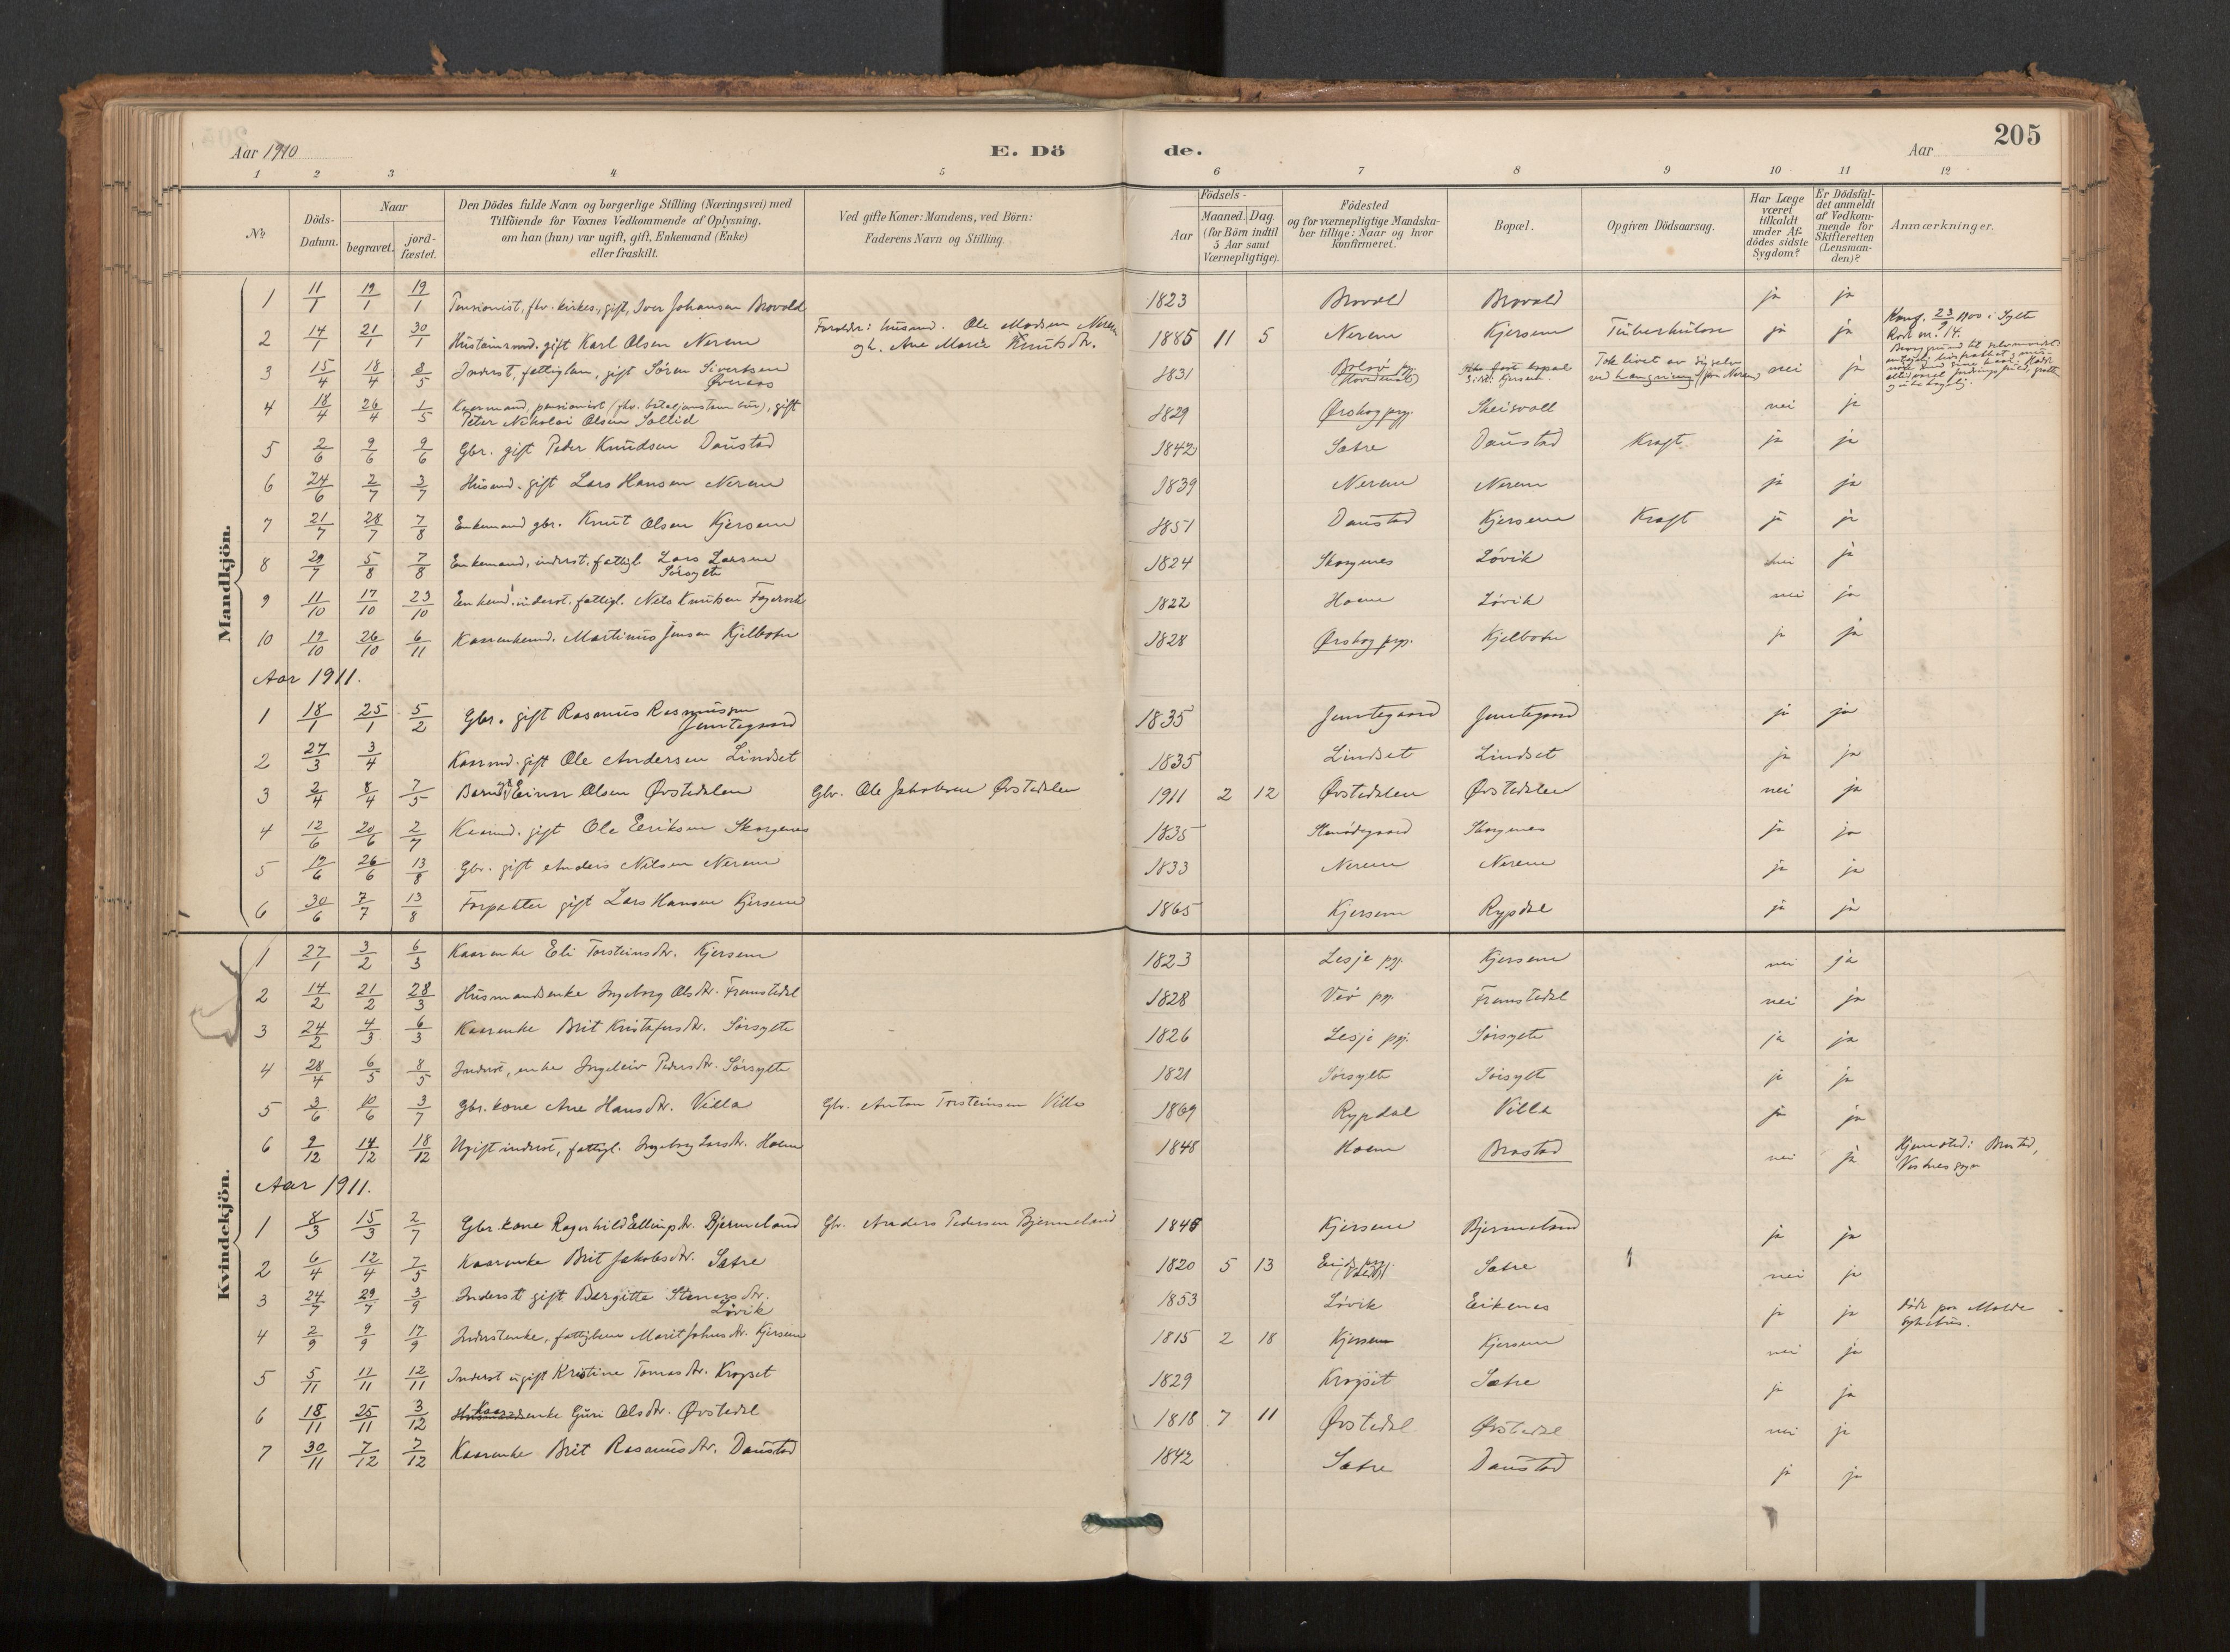 205
Aar 1910
E. Dö
de.
Aar
1 2 3 4 5 6 7 8 9 10 11 12
№
Döds-Datum.
Naar
begravet.
jord-fæstet.
Den Dödes fulde Navn og borgerlige Stilling (Næringsvei) med
Tilföiende for Voxnes Vedkommende af Oplysning,
om han (hun) var ugift, gift, Enkemand (Enke)
eller fraskilt.
Ved gifte Koner: Mandens, ved Börn:
Faderens Navn og Stilling.
Födsels-
Aar
Maaned. Dag.
(for Börn indtil
5 Aar samt
Værnepligtige).
Födested
og for værnepligtige Mandska-
ber tillige: Naar og hvor
konfirmeret.
Bopæl.
Opgiven Dödsaarsag.
Har Læge
været
tilkaldt
under Af-
dödes sidste
Sygdom?
Er Dödsfal-
det anmeldt
af Vedkom-
mende for
Skifteretten
(Lensman-
den)?
Anmærkninger.
Mandkjön.
1 11/1 19/1 19/1 Pensionist, fhv. kirkes., gift, Iver Johansen Brovold 1823 Brovold Brovold ja ja
2 14/1 21/1 30/1 gift Karl Olsen Nerem Forældre: husmd. Ole Madsen Nerem
og h. Ane Marie Knutsdtr. 1885 11 5 Nerem Kjersem Tuberkulose ja ja Konf. 23/9 1900 i Sylte
3 15/4 18/4 8/5 Inderst, fattiglem, gift Sören Sivertsen
Överaas 1831 Bolsö pgj. Tok livet av sig selv
ved hængning nei ja
4 18/4 26/4 1/5 Kaarmand, pensionist gift
Peter Nikolai Olsen Sollid 1829 Ørskog prgj. Skeisvoll nei ja
5 2/6 9/6 9/6 Gbr. gift Peder Knudsen Daustad 1842 Sætre Daustad Kræft ja ja
6 24/6 2/7 3/7 Husmd. gift Lars Hansen Nerem 1839 Nerem Nerem ja ja
7 21/7 28/7 7/8 Enkemand gbr. Knut Olsen Kjersem 1851 Daustad Kjersem Kræft ja ja
8 29/7 5/8 7/8 Enkemand, inderst, fattigl. Lars Larsen
Sörsylte 1824 Skorgenes Lövik nei ja
9 11/10 17/10 23/10 Enkemd. inderst, fattigl. Nels Knutsen Fagervik 1822 Hoem Lövik nei ja
10 19/10 26/10 6/11 Kaarenkemd. Martinus Jensen Kjelbotn 1828 Ørskog prgj. Kjelbotn ja ja
Aar 1911.
1 18/1 25/1 5/2 Gbr. gift Rasmus Rasmussen
Jemtegaard 1835 Jemtegaard Jemtegaard ja ja
2 27/3 3/4 Kaarmd. gift Ole Andersen Lindset 1835 Lindset Lindset ja ja
3 2/4 8/4 7/5 Einar Olsen Øvstedalen Gbr. Ole Jakobsen Øvstedalen 1911 2 12 Øvstedalen Øvstedalen nei ja
4 12/6 20/6 2/7 Kaarmd. gift Ole Eriksen Skorgenes 1835 Skorgenes ja ja
5 19/6 26/6 13/8 Gbr. gift Anders Nilsen Nerem 1833 Nerem Nerem ja ja
6 30/6 7/7 13/8 Forpakter gift Lars Hansen Kjersem 1865 Kjersem Rypdal ja ja
Kvindekjön.
1 27/1 3/2 6/3 Kaarenke Eli Torsteinsdtr. Kjersem 1823 Lesje pgj. Kjersem nei ja
2 14/2 21/2 28/3 Husmandsenke Ingeborg Olsdtr. Framstedal 1828 Veö pgj. Framstedal nei ja
3 24/2 4/3 6/3 Kaarenke Brit Kristofersdtr. Sörsylte 1826 Lesje pgj. Sörsylte ja ja
4 28/4 6/5 8/5 Inderst, enke Ingeleiv Pedersdtr. Sörsylte 1821 Sörsylte Sörsylte ja ja
5 3/6 10/6 3/7 Gbr. kone Ane Hansdtr. Villa Gbr. Anton Torsteinsen Villa 1869 Rypdal Villa ja ja
6 9/12 14/12 18/12 Ugift inderst, fattigl. Ingeborg Larsdtr. Hoem 1848 Hoem Brastad nei ja Hjemsted: Brastad,
Vestnes sogn
Aar 1911.
1 8/3 15/3 2/7 Gbr. kone Ragnhild Ellingsdtr. Bjermeland Gbr. Anders Pedersen Bjermeland 1846 Kjersem Bjermeland ja ja
2 6/4 12/4 7/5 Kaarenke Brit Jakobsdtr. Sætre 1820 5 13 Eids prgj. Sætre nei ja
3 24/7 29/7 3/9 Inderst gift Bergitte Stenersdtr.
Lövik 1853 Lövik Eikenes ja ja Döde paa Molde
sykehus.
4 2/9 9/9 17/9 Inderstenke, fattiglem Marit Johnsdtr. Kjersem 1815 2 18 Kjersem Kjersem nei ja
5 5/11 11/11 12/11 Inderst ugift Kristine Tomasdtr. Kropset 1829 Kropset Sætre ja ja
6 18/11 25/11 3/12 Kaarenke Guri Olsdtr. Øvstedal 1818 7 11 Øvstedal Øvstedal nei ja
7 30/11 7/12 7/12 Kaarenke Brit Rasmusdtr. Daustad 1842 Sætre Daustad ja ja